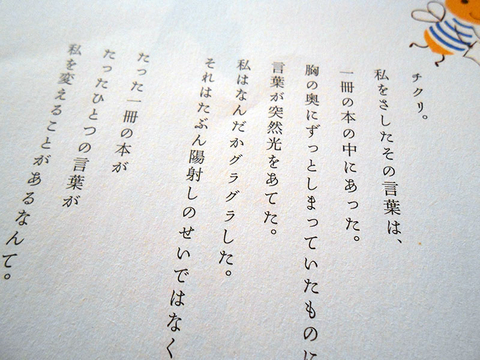 チクリ。
私をさしたその言葉は、
一冊の本の中にあった。
胸の奥にずっとしまっていたものに
言葉が突然光をあてた。
私はなんだかグラグラした。
それはたぶん陽射しのせいではなく
たった一冊の本が
たったひとつの言葉が
私を変えることがあるなんて。